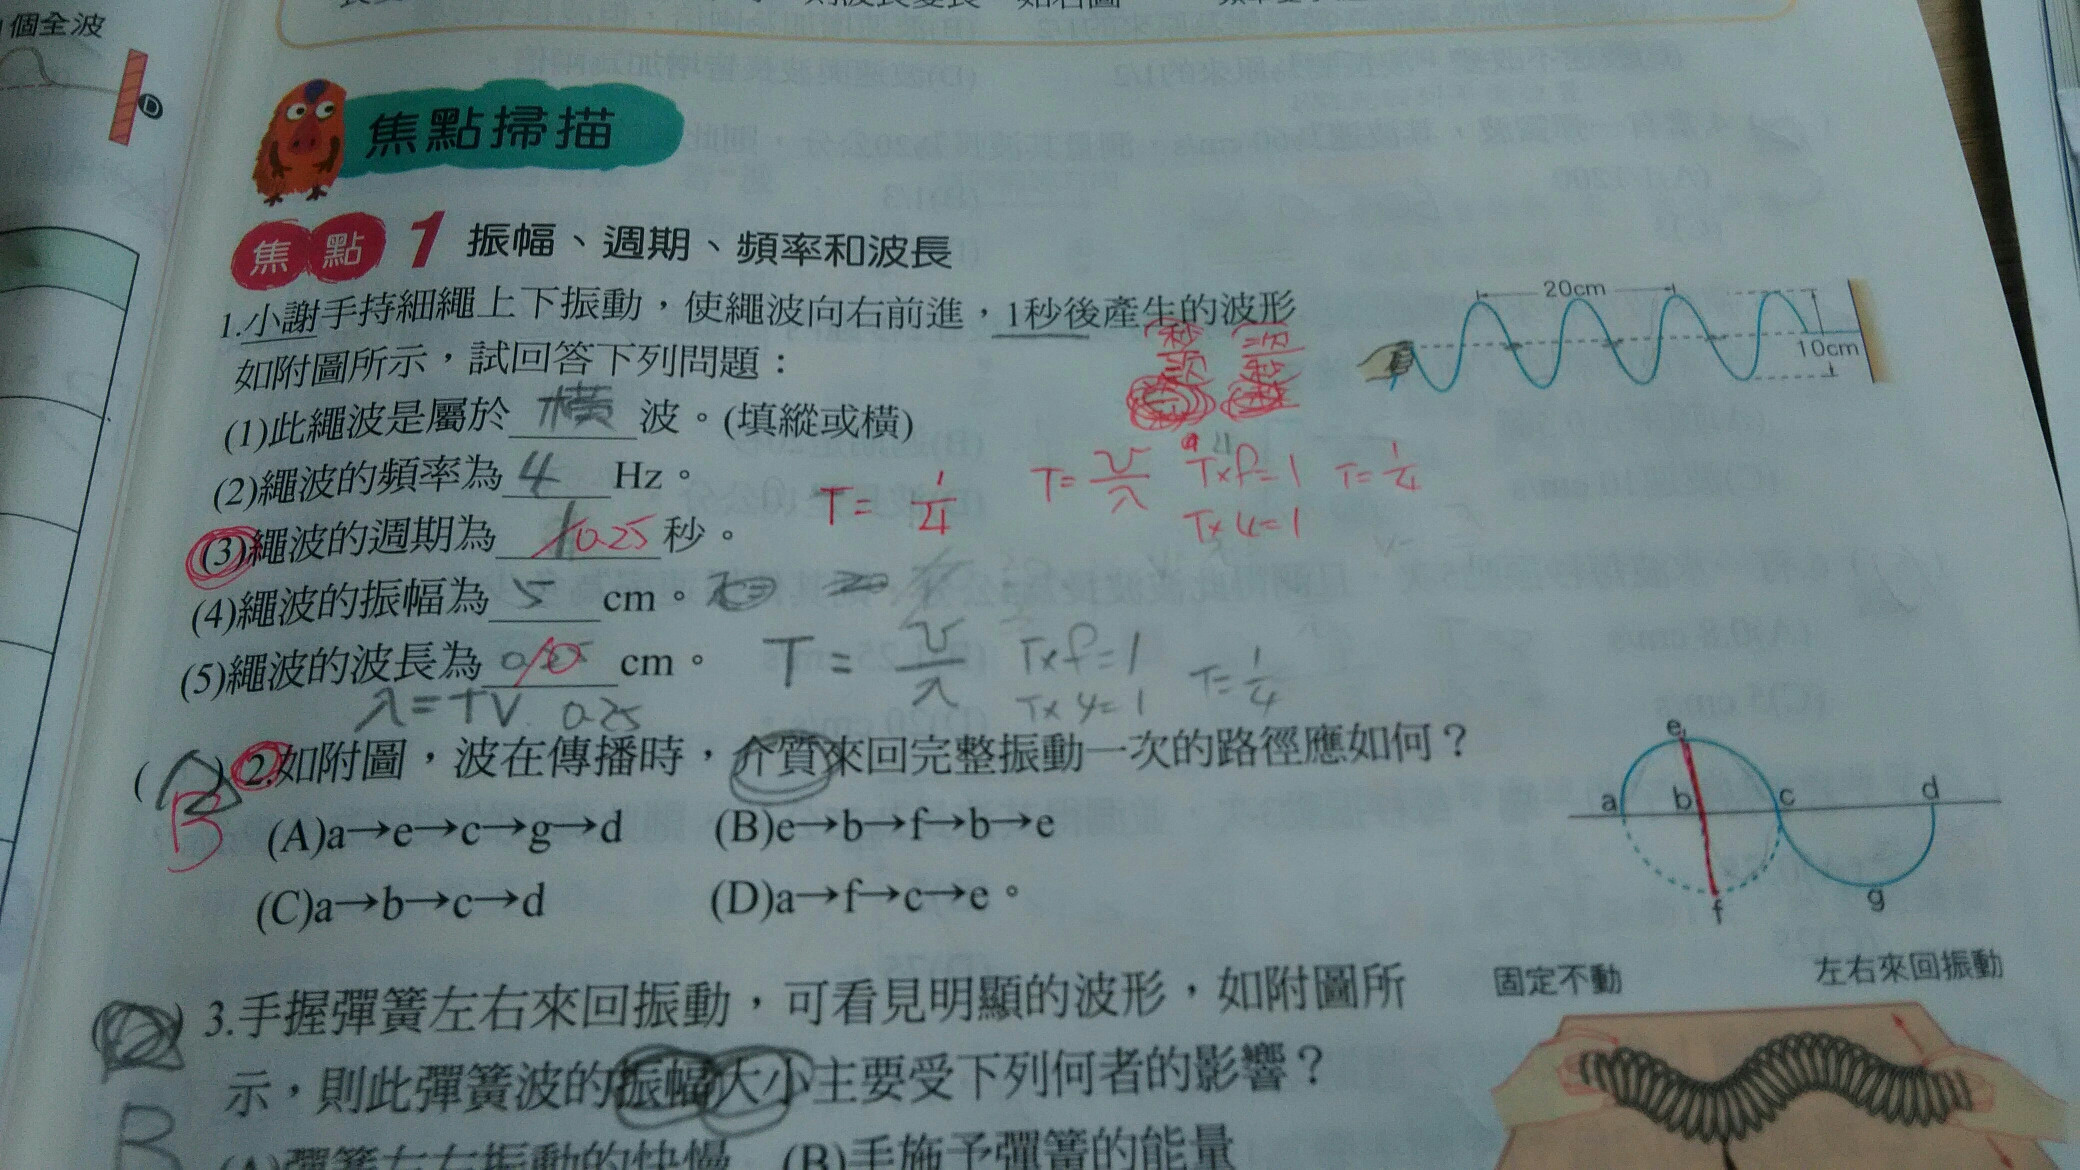 個全波
焦點掃描
焦點 1 振幅、週期、頻率和波長
1.小謝手持細繩上下振動，使繩波向右前進，1秒後產生的波形
如附圖所示，試回答下列問題：
20cm
10cm
秒 次
次 秒
(1)此繩波是屬於 橫 波。(填縱或橫)
(2)繩波的頻率為 4 Hz。
T= 1/4
T= v/λ T×f=1 T= 1/4
T×4=1
(3)繩波的週期為 0.25 秒。
(4)繩波的振幅為 5 cm。
(5)繩波的波長為 10 cm。
T= v/λ T×f=1 T= 1/4
T×4=1
λ=TV 0.25
B
( )2.如附圖，波在傳播時，介質來回完整振動一次的路徑應如何？
(A)a→e→c→g→d (B)e→b→f→b→e
(C)a→b→c→d (D)a→f→c→e。
e
a b c d
f g
B
3.手握彈簧左右來回振動，可看見明顯的波形，如附圖所
示，則此彈簧波的振幅大小主要受下列何者的影響？
(A)彈簧左右振動的快慢 (B)手施予彈簧的能量
固定不動 左右來回振動